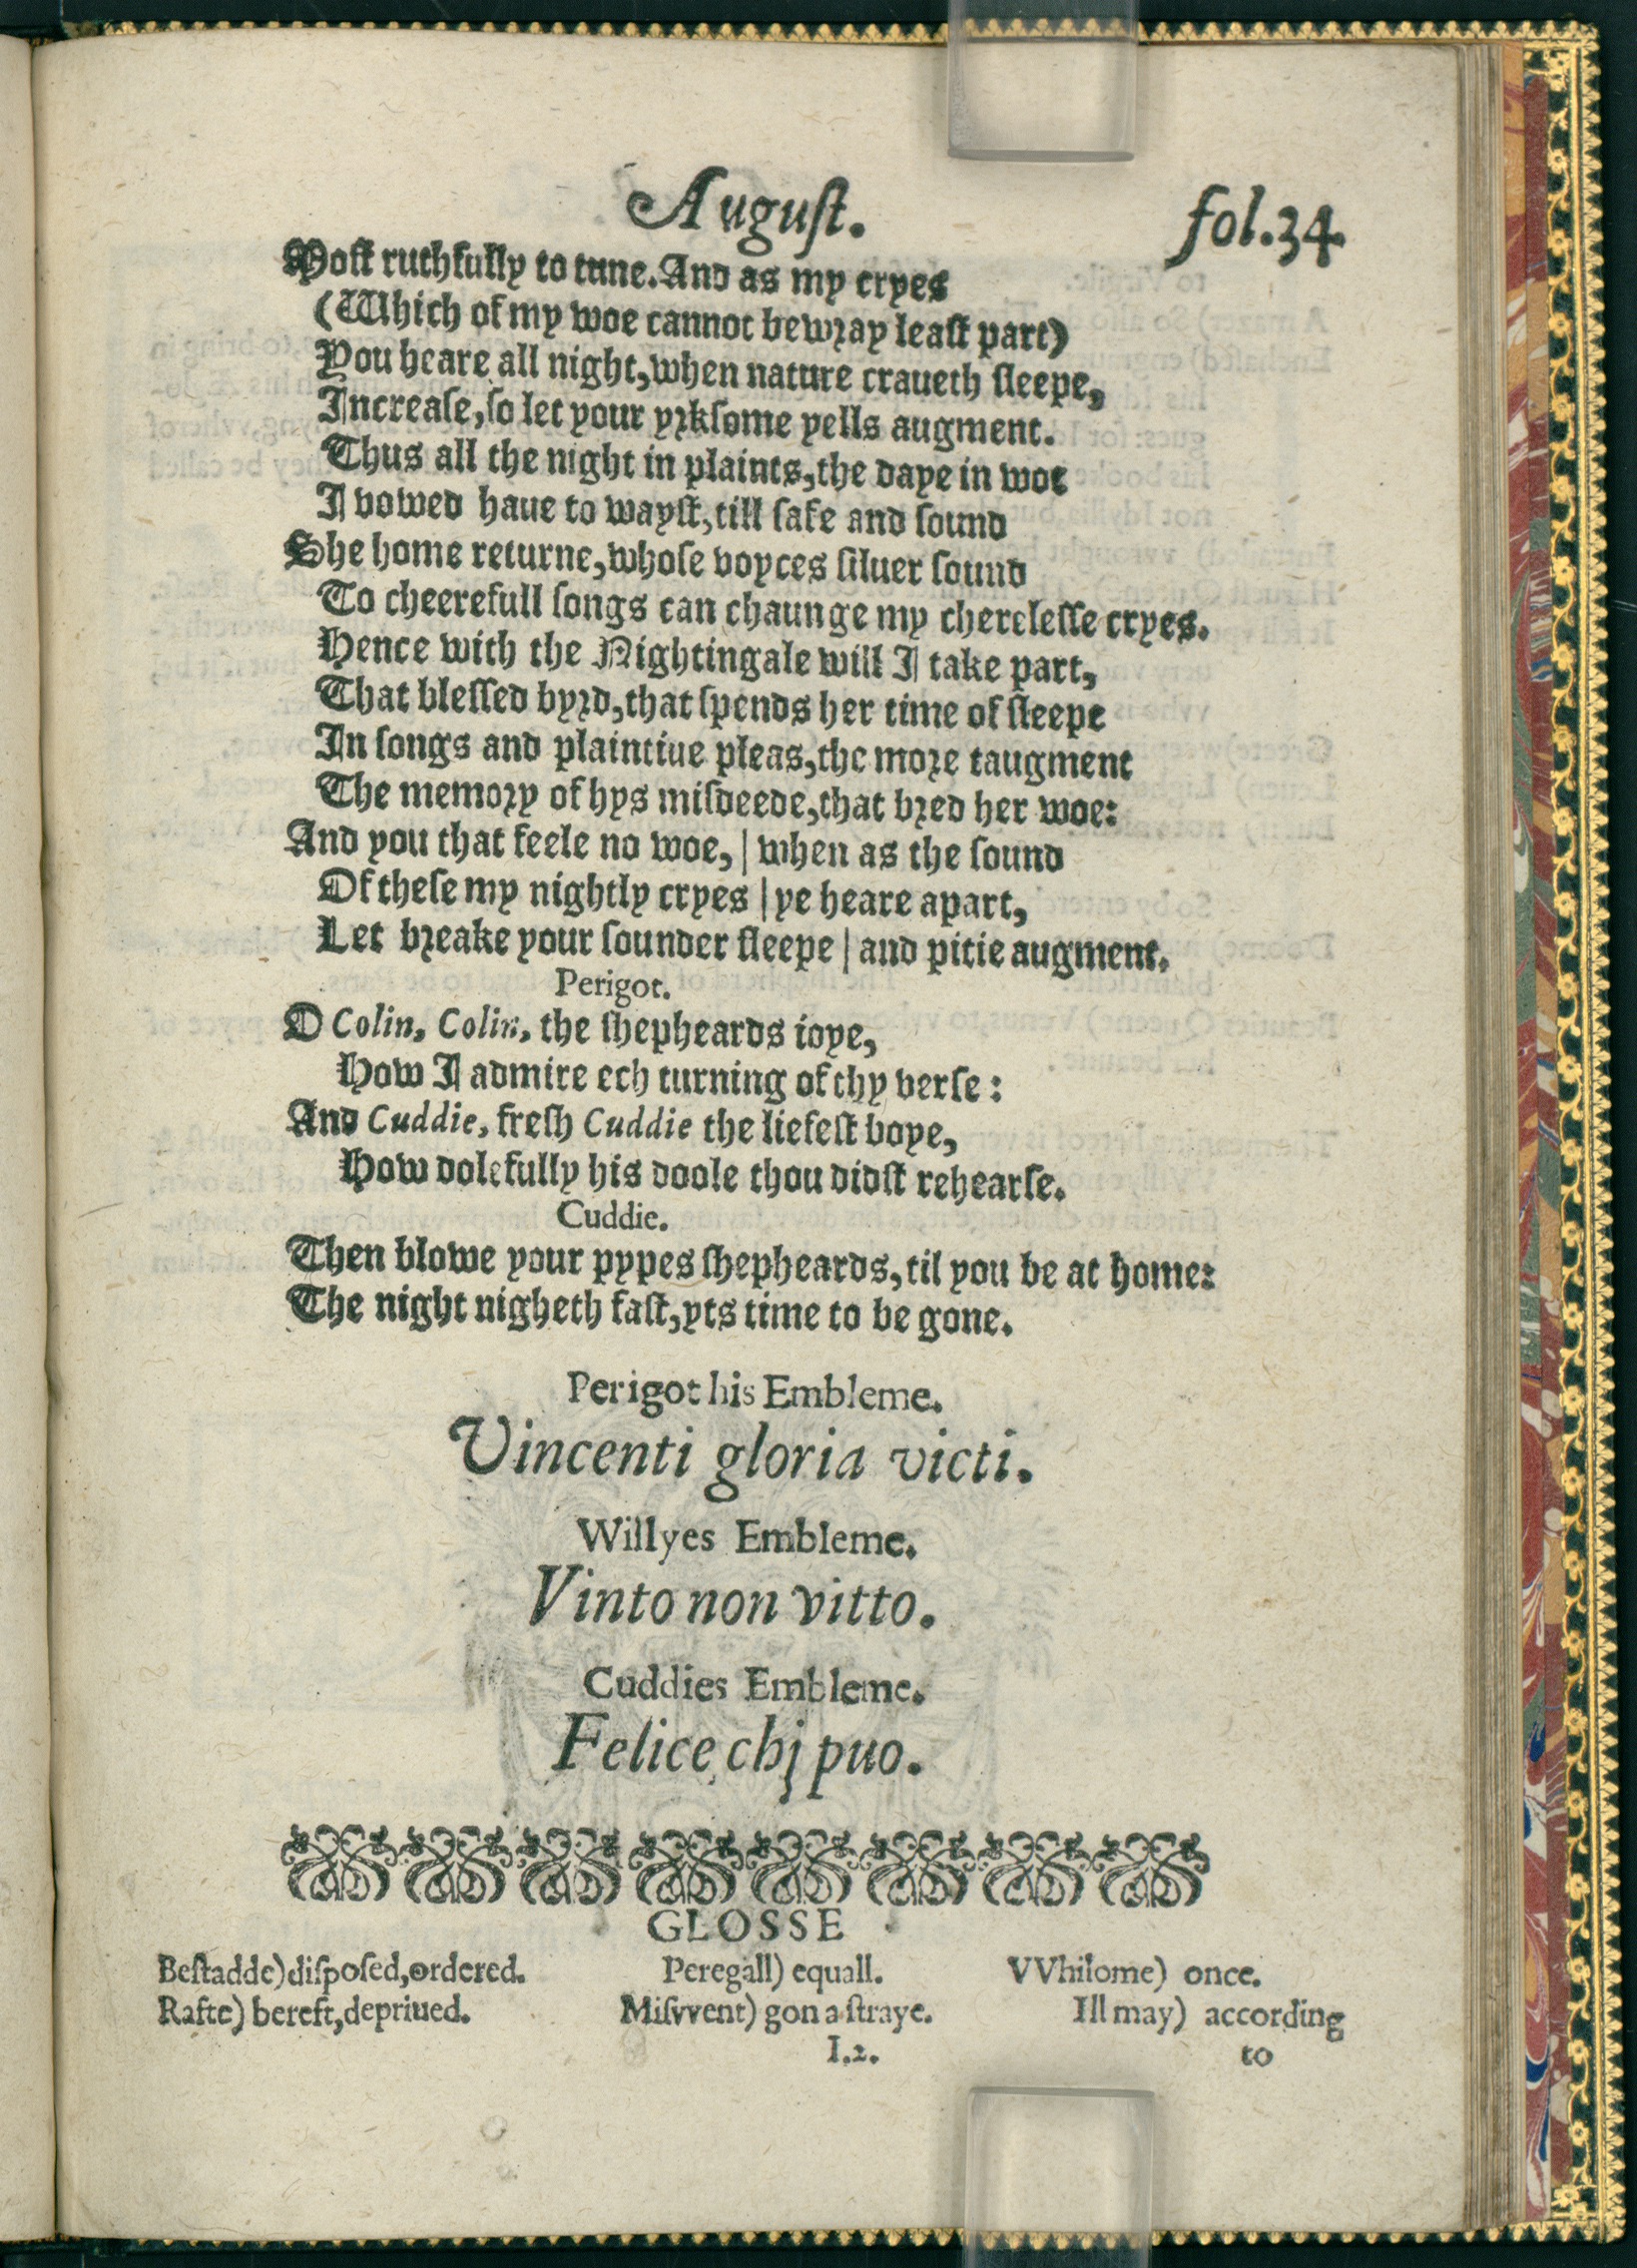 Auguſt. fol.34.
Moſt ruthfully to tune. And as my cryes
(Which of my woe cannot bewray leaſt part)
You heare all night, when nature craueth ſleepe,
Increaſe, ſo let your yrkſome yells augment.
Thus all the night in plaints, the daye in woe
I vowed haue to wayſt, till ſafe and ſound
She home returne, whoſe voyces ſiluer ſound
To cheerefull ſongs can chaunge my chereleſſe cryes.
Hence with the Nightingale will I take part,
That bleſſed byrd, that ſpends her time of ſleepe
In ſongs and plaintiue pleas, the more taugment
The memory of hys miſdeede, that bred her woe:
And you that feele no woe, | when as the ſound
Of theſe my nightly cryes | ye heare apart,
Let breake your ſounder ſleepe | and pitie augment.
Perigot.
O Colin, Colin, the ſhepheards ioye,
How I admire ech turning of thy verſe:
And Cuddie, freſh Cuddie the liefeſt boye,
How dolefully his doole thou didſt rehearſe.
Cuddie.
Then blowe your pypes ſhepheards, til you be at home:
The night nigheth faſt, yts time to be gone.
Perigot his Embleme.
Vincenti gloria victi.
Willyes Embleme.
Vinto non vitto.
Cuddies Embleme.
Felice chi puo.
GLOSSE
Beſtadde) diſpoſed, ordered. Peregall) equall. VVhilome) once.
Rafte) bereft, depriued. Miſvvent) gon a ſtraye. Ill may) according
I.2. to